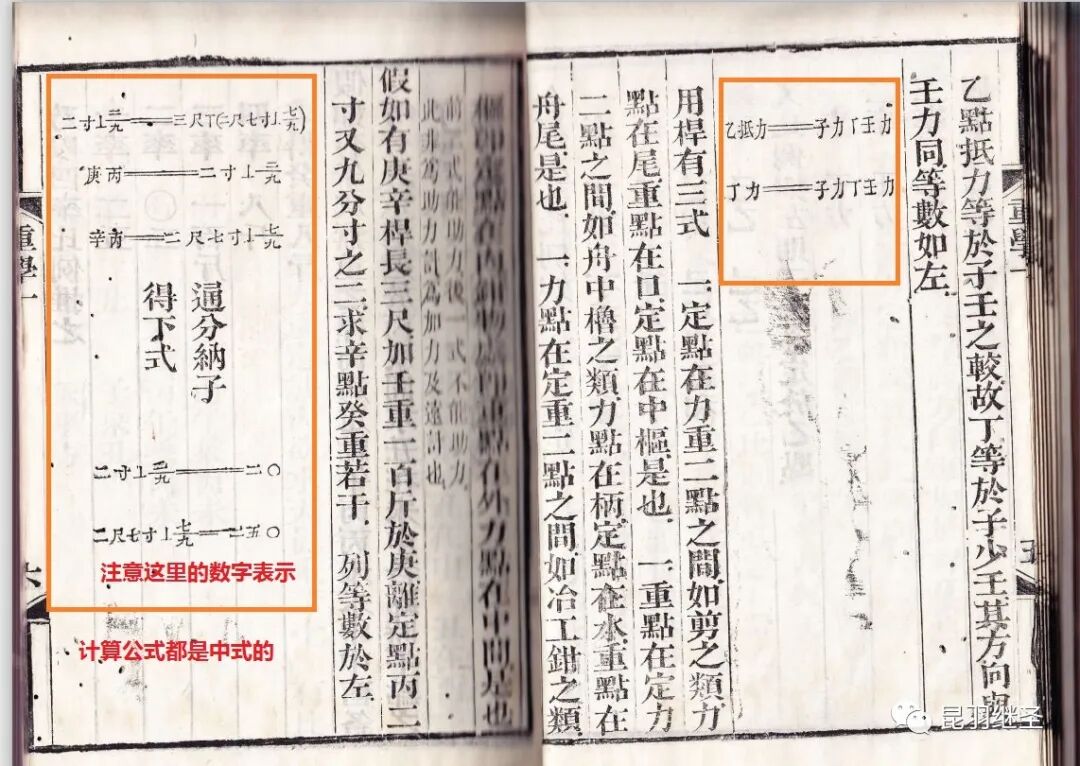 乙點抵力等於子壬之較故丁等於子少壬其方向與
壬力同等數如左
乙抵力══子力丅壬力
丁力══子力丅壬力
用桿有三式 一定點在力重二點之間如剪之類力
點在尾重點在口定點在中樞是也 一重點在定力
二點之間如舟中櫓之類力點在柄定點在水重點在
舟尾是也 一力點在定重二點之間如冶工鉗之類
樞即定點在內鉗物處即重點在外力點在中間是也
前二式能助力後一式不能助力
此非為助力計為加力及遠計也
假如有庚辛桿長三尺加壬重一百斤於庚離定點丙二
寸又九分寸之二求辛點癸重若干 列等數於左
二寸⊥二/九══三尺丅(二尺七寸⊥七/九)
庚丙══二寸⊥二/九
辛丙══二尺七寸⊥七/九
通分納子
得下式
二寸⊥二/九══二〇
二尺七寸⊥七/九══二五〇
重學一
五
重學一
六
注意这里的数字表示
计算公式都是中式的
昆羽继圣